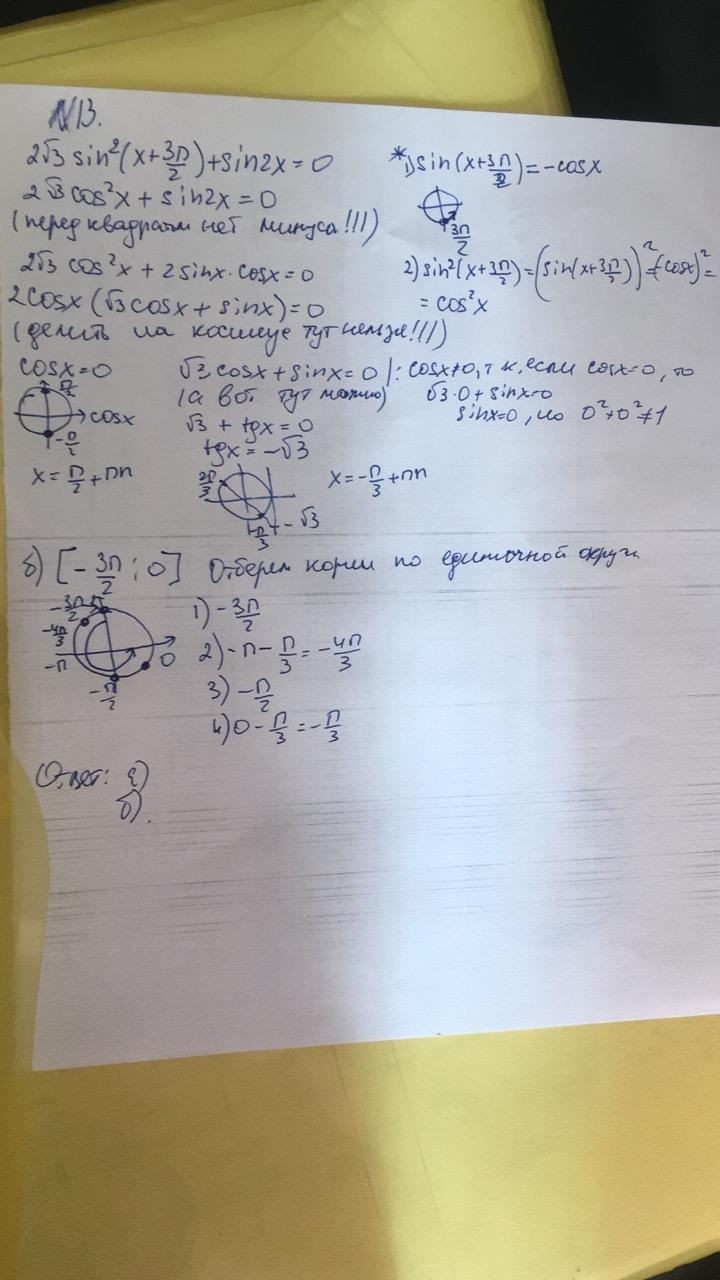 N13.
2√3 sin²(x+3π/2)+sin2x=0
2√3 cos²x + sin2x = 0
(перед квадратом нет минуса!!!)
*1) sin(x+3π/2) = -cosx
3π/2
2√3 cos²x + 2sinx·cosx=0
2cosx(√3cosx + sinx)=0
(делить на косинус тут нельзя!!!)
2) sin²(x+3π/2) = (sin(x+3π/2))² = (-cosx)² =
= cos²x
cosx=0
π/2
cosx
-π/2
x = π/2 + πn
√3cosx + sinx = 0 |: cosx≠0, т к. если cosx=0, то
(а вот тут можно)
√3·0 + sinx=0
sinx=0, но 0²+0²≠1
√3 + tgx = 0
tgx = -√3
2π/3
-π/3
-√3
x = -π/3 + πn
б) [-3π/2 ; 0] Отберем корни по единичной окруж.
-3π/2
-4π/3
-π
-π/2
0
1) -3π/2
2) -π - π/3 = -4π/3
3) -π/2
4) 0 - π/3 = -π/3
Ответ: а)
б).